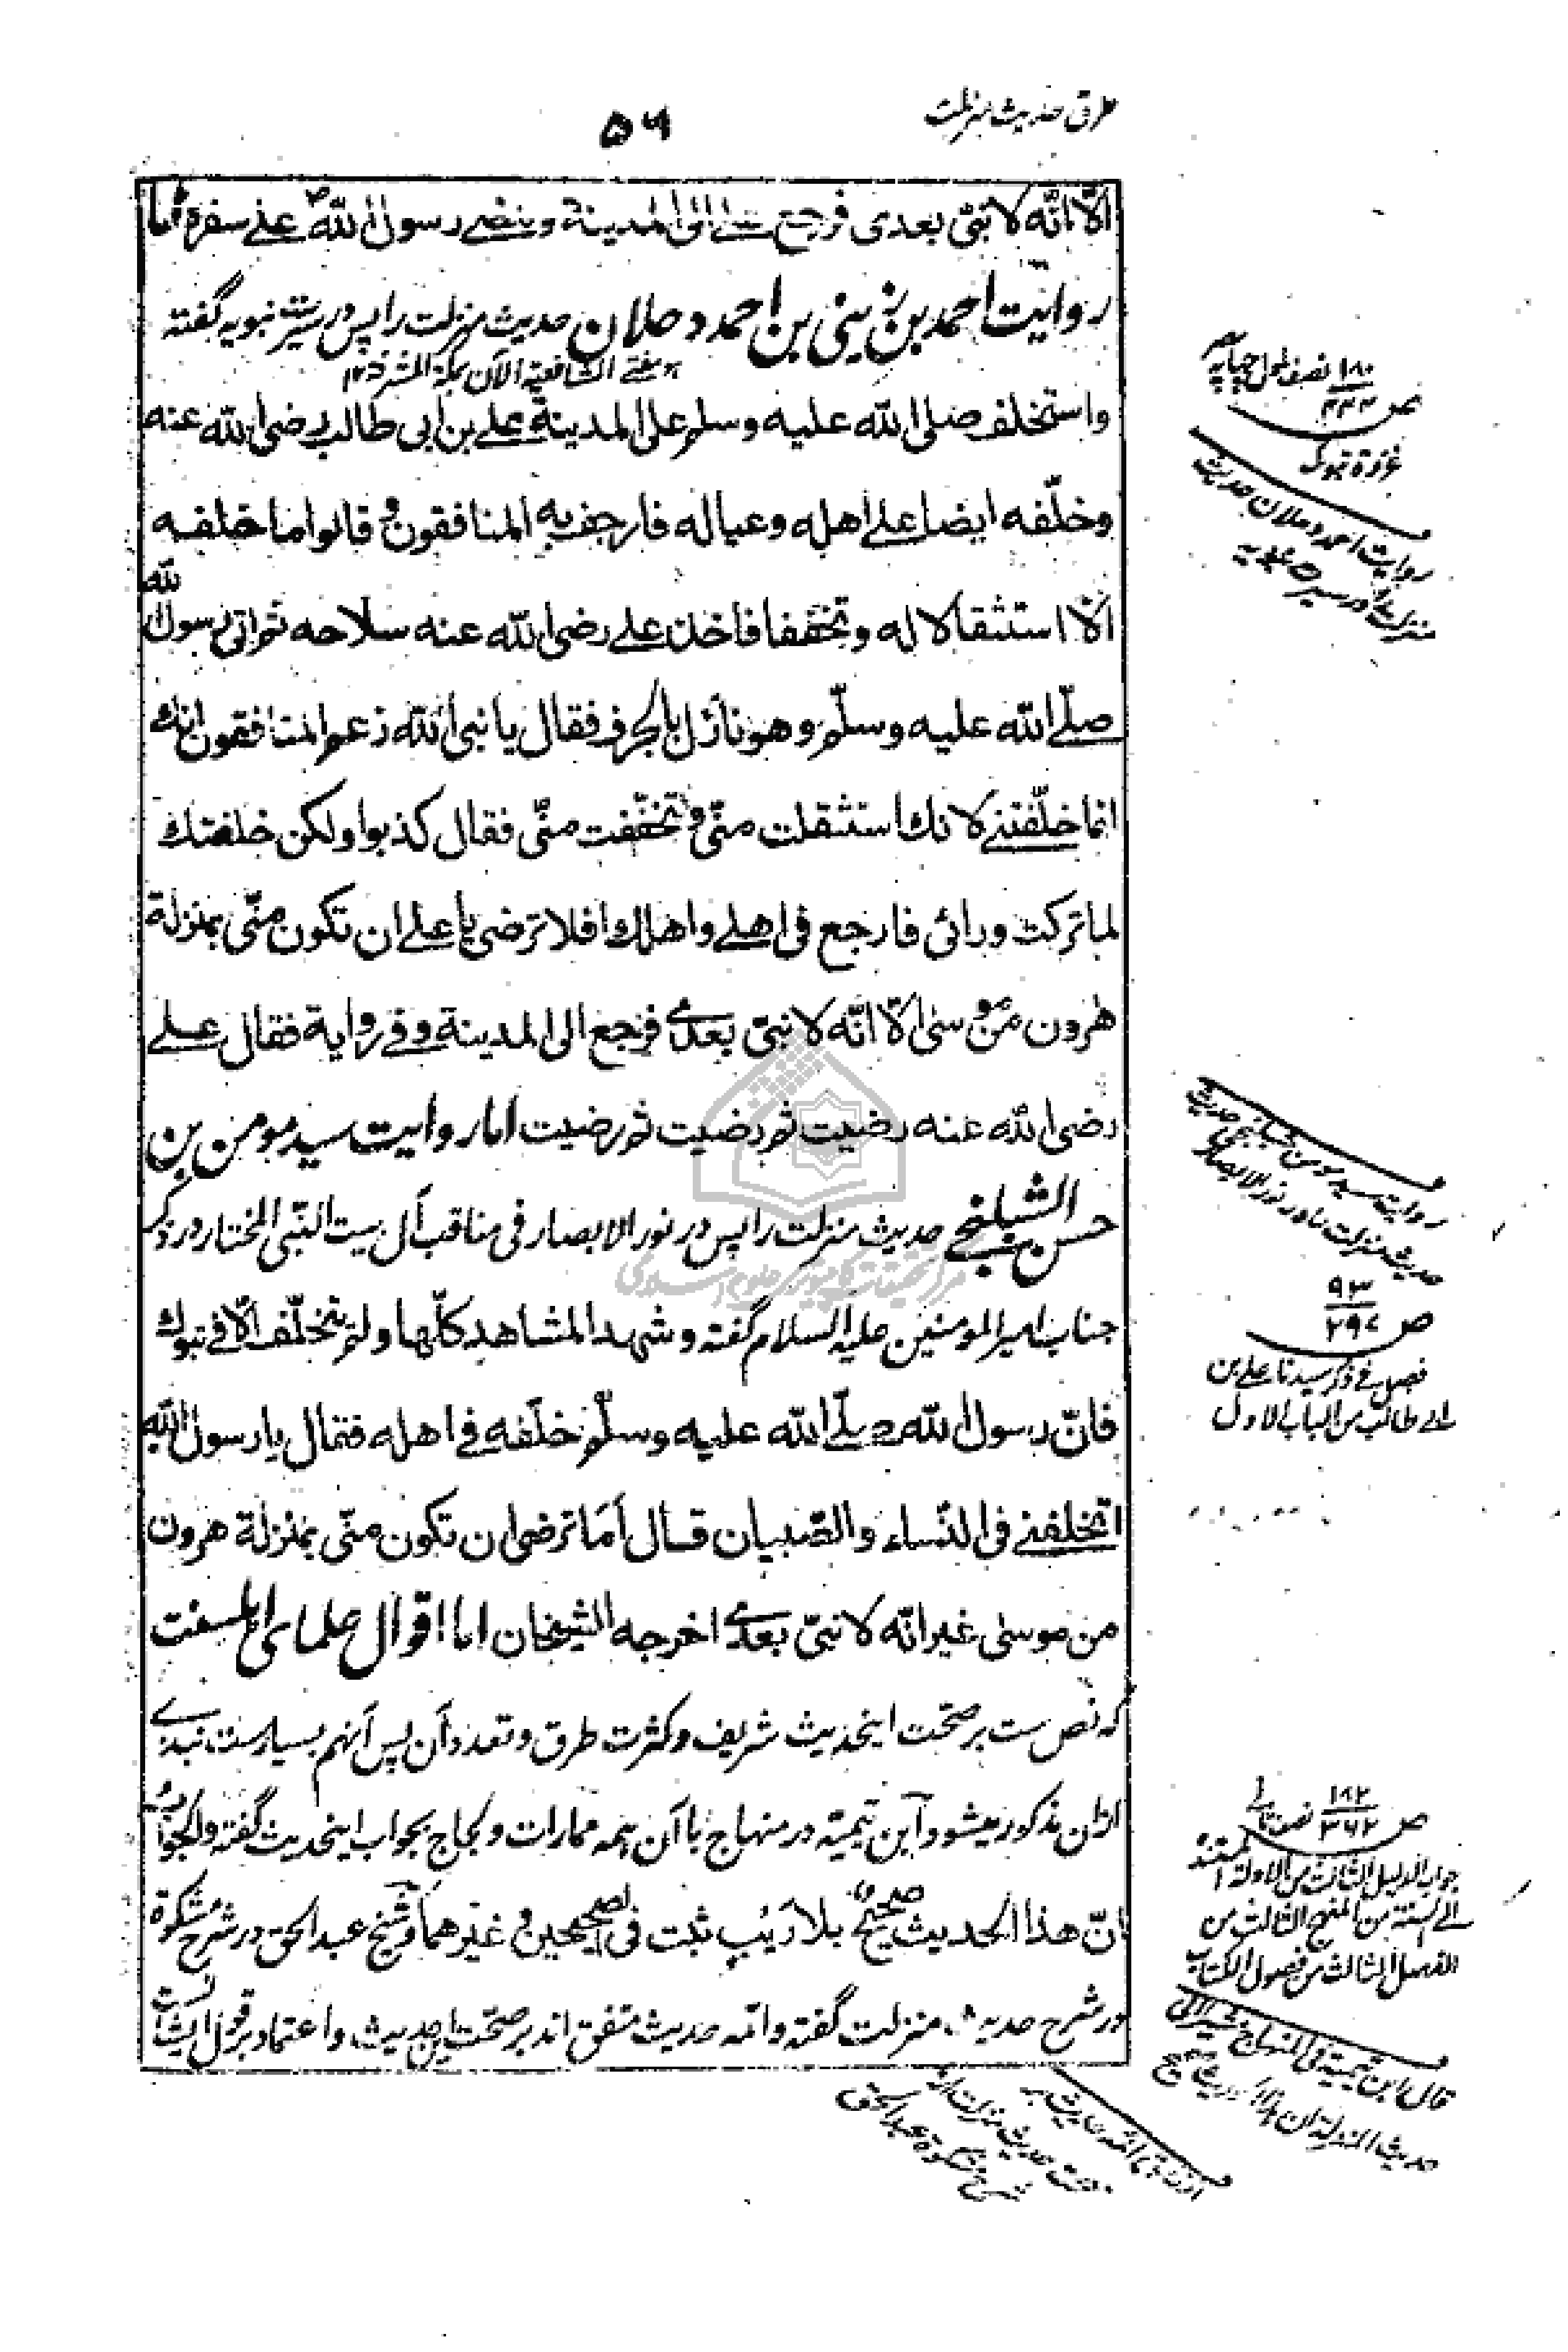 طرق حدیث منزلت
۵۶
الّا انّه لا نبیّ بعدی فرجع علے الی المدینة و مضے رسول الله ص علے سفره امّا
روایت احمد بن زینی بن احمد دحلان حدیث منزلت را پس در سیرت نبویه گفته
مفتے الشافعیة الآن بمکة المشرفة ۱۲
واستخلف صلی الله علیه وسلم علی المدینة علے بن ابی طالب رضی الله عنه
وخلّفه ایضا علے اهله وعیاله فارجف به المنافقون و قالوا ما خلفه
الّا استثقالا له وتخففا فاخذ علے رضی الله عنه سلاحه ثم اتی رسول الله
صلّے الله علیه وسلّم وهو نازل بالجرف فقال یا نبی الله زعم المنافقون انك
انما خلّفتنے لانك استثقلت منّی وتخفّفت منّی فقال کذبوا ولکن خلفتك
لما ترکت ورائی فارجع فی اهلے واهلك افلا ترضی یا علے ان تکون منّی بمنزلة
هرون من موسی الّا انّه لا نبیّ بعدے فرجع الی المدینة وفے روایة فقال علے
رضی الله عنه رضیت ثم رضیت ثم رضیت اما روایت سید مومن بن
حسن الشبلنجے حدیث منزلت را پس در نور الابصار فی مناقب آل بیت النّبی المختار در ذکر
جناب امیر المومنین علیه السلام گفته و شهد المشاهد کلّها ولم یتخلّف الّا فے تبوك
فانّ رسول الله صلّے الله علیه وسلّم خلّفه فے اهله فقال یا رسول الله
اتخلفنے فی النّساء والصّبیان قال أما ترضی ان تکون منّی بمنزلة هرون
من موسی غیر انّه لا نبیّ بعدے اخرجه الشیخان اما اقوال علمای اهلسنت
که نص ست بر صحّت اینحدیث شریف و کثرت طرق و تعدد آن پس آنهم بسیارست نبذے
ازان مذکور میشود ابن تیمیّة در منهاج با آن همه ممارات و لجاج بجواب اینحدیث گفته والجواب
انّ هذا الحدیث صحیح بلا ریب ثبت فی الصحیحین و غیرهما و شیخ عبد الحق در شرح مشکوة
در شرح حدیث منزلت گفته وائمه حدیث متفق اند بر صحّت این حدیث و اعتماد بر قول ایشان
۱۸۰
ص ۴۴۴
غزوة تبوک
روایت احمد دحلان حدیث
روایت سید مومن شبلنجی حدیث
حدیث منزلت را در نور الابصار
۹۳
ص ۲۹۷
فصل فے ذکر سیدنا علے بن
ابے طالب من الباب الاول
۱۸۲
ص ۳۶۲
جواب الدلیل الثالث من الادلة
الے السنة من المنهج الثالث من
الفصل الثالث من فصول الکتاب
قال ابن تیمیة فی المنهاج
شرح مشکوة عبد الحق